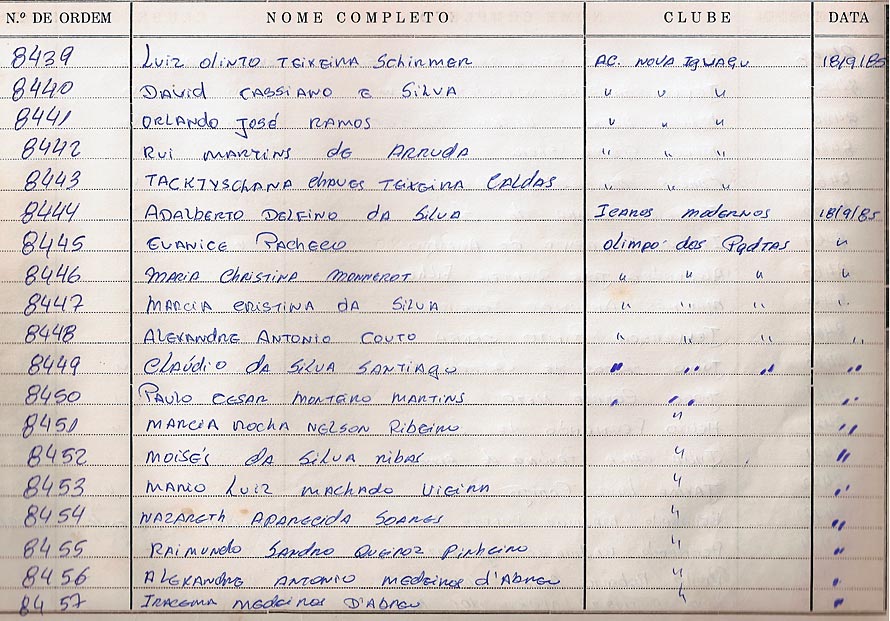 N.º DE ORDEM NOME COMPLETO CLUBE DATA
8439 Luiz Olinto Teixeira Schirmer AC. Nova Iguaçu 18/9/85
8440 David Cassiano e Silva " " "
8441 Orlando José Ramos " " "
8442 Rui Martins de Arruda " " "
8443 Tacktyschana Chaves Teixeira Caldas " " "
8444 Adalberto Delfino da Silva Icaros modernos 18/9/85
8445 Evanice Pacheco Olimpo dos "
8446 Maria Christina Monnerot " " " "
8447 Marcia Cristina da Silva " " " "
8448 Alexandre Antonio Couto " " " "
8449 Claúdio da Silva Santiago " " " "
8450 Paulo Cesar Monteiro Martins " " "
8451 Marcia Rocha Nelson Ribeiro " "
8452 Moisés da Silva Ribas " "
8453 Mario Luiz Machado Vieira " "
8454 Nazareth Aparecida Soares " "
8455 Raimundo Sandro Queiroz Pinheiro " "
8456 Alexandre Antonio Medeiros d'Abreu " "
8457 Iracema Medeiros D'Abreu " "